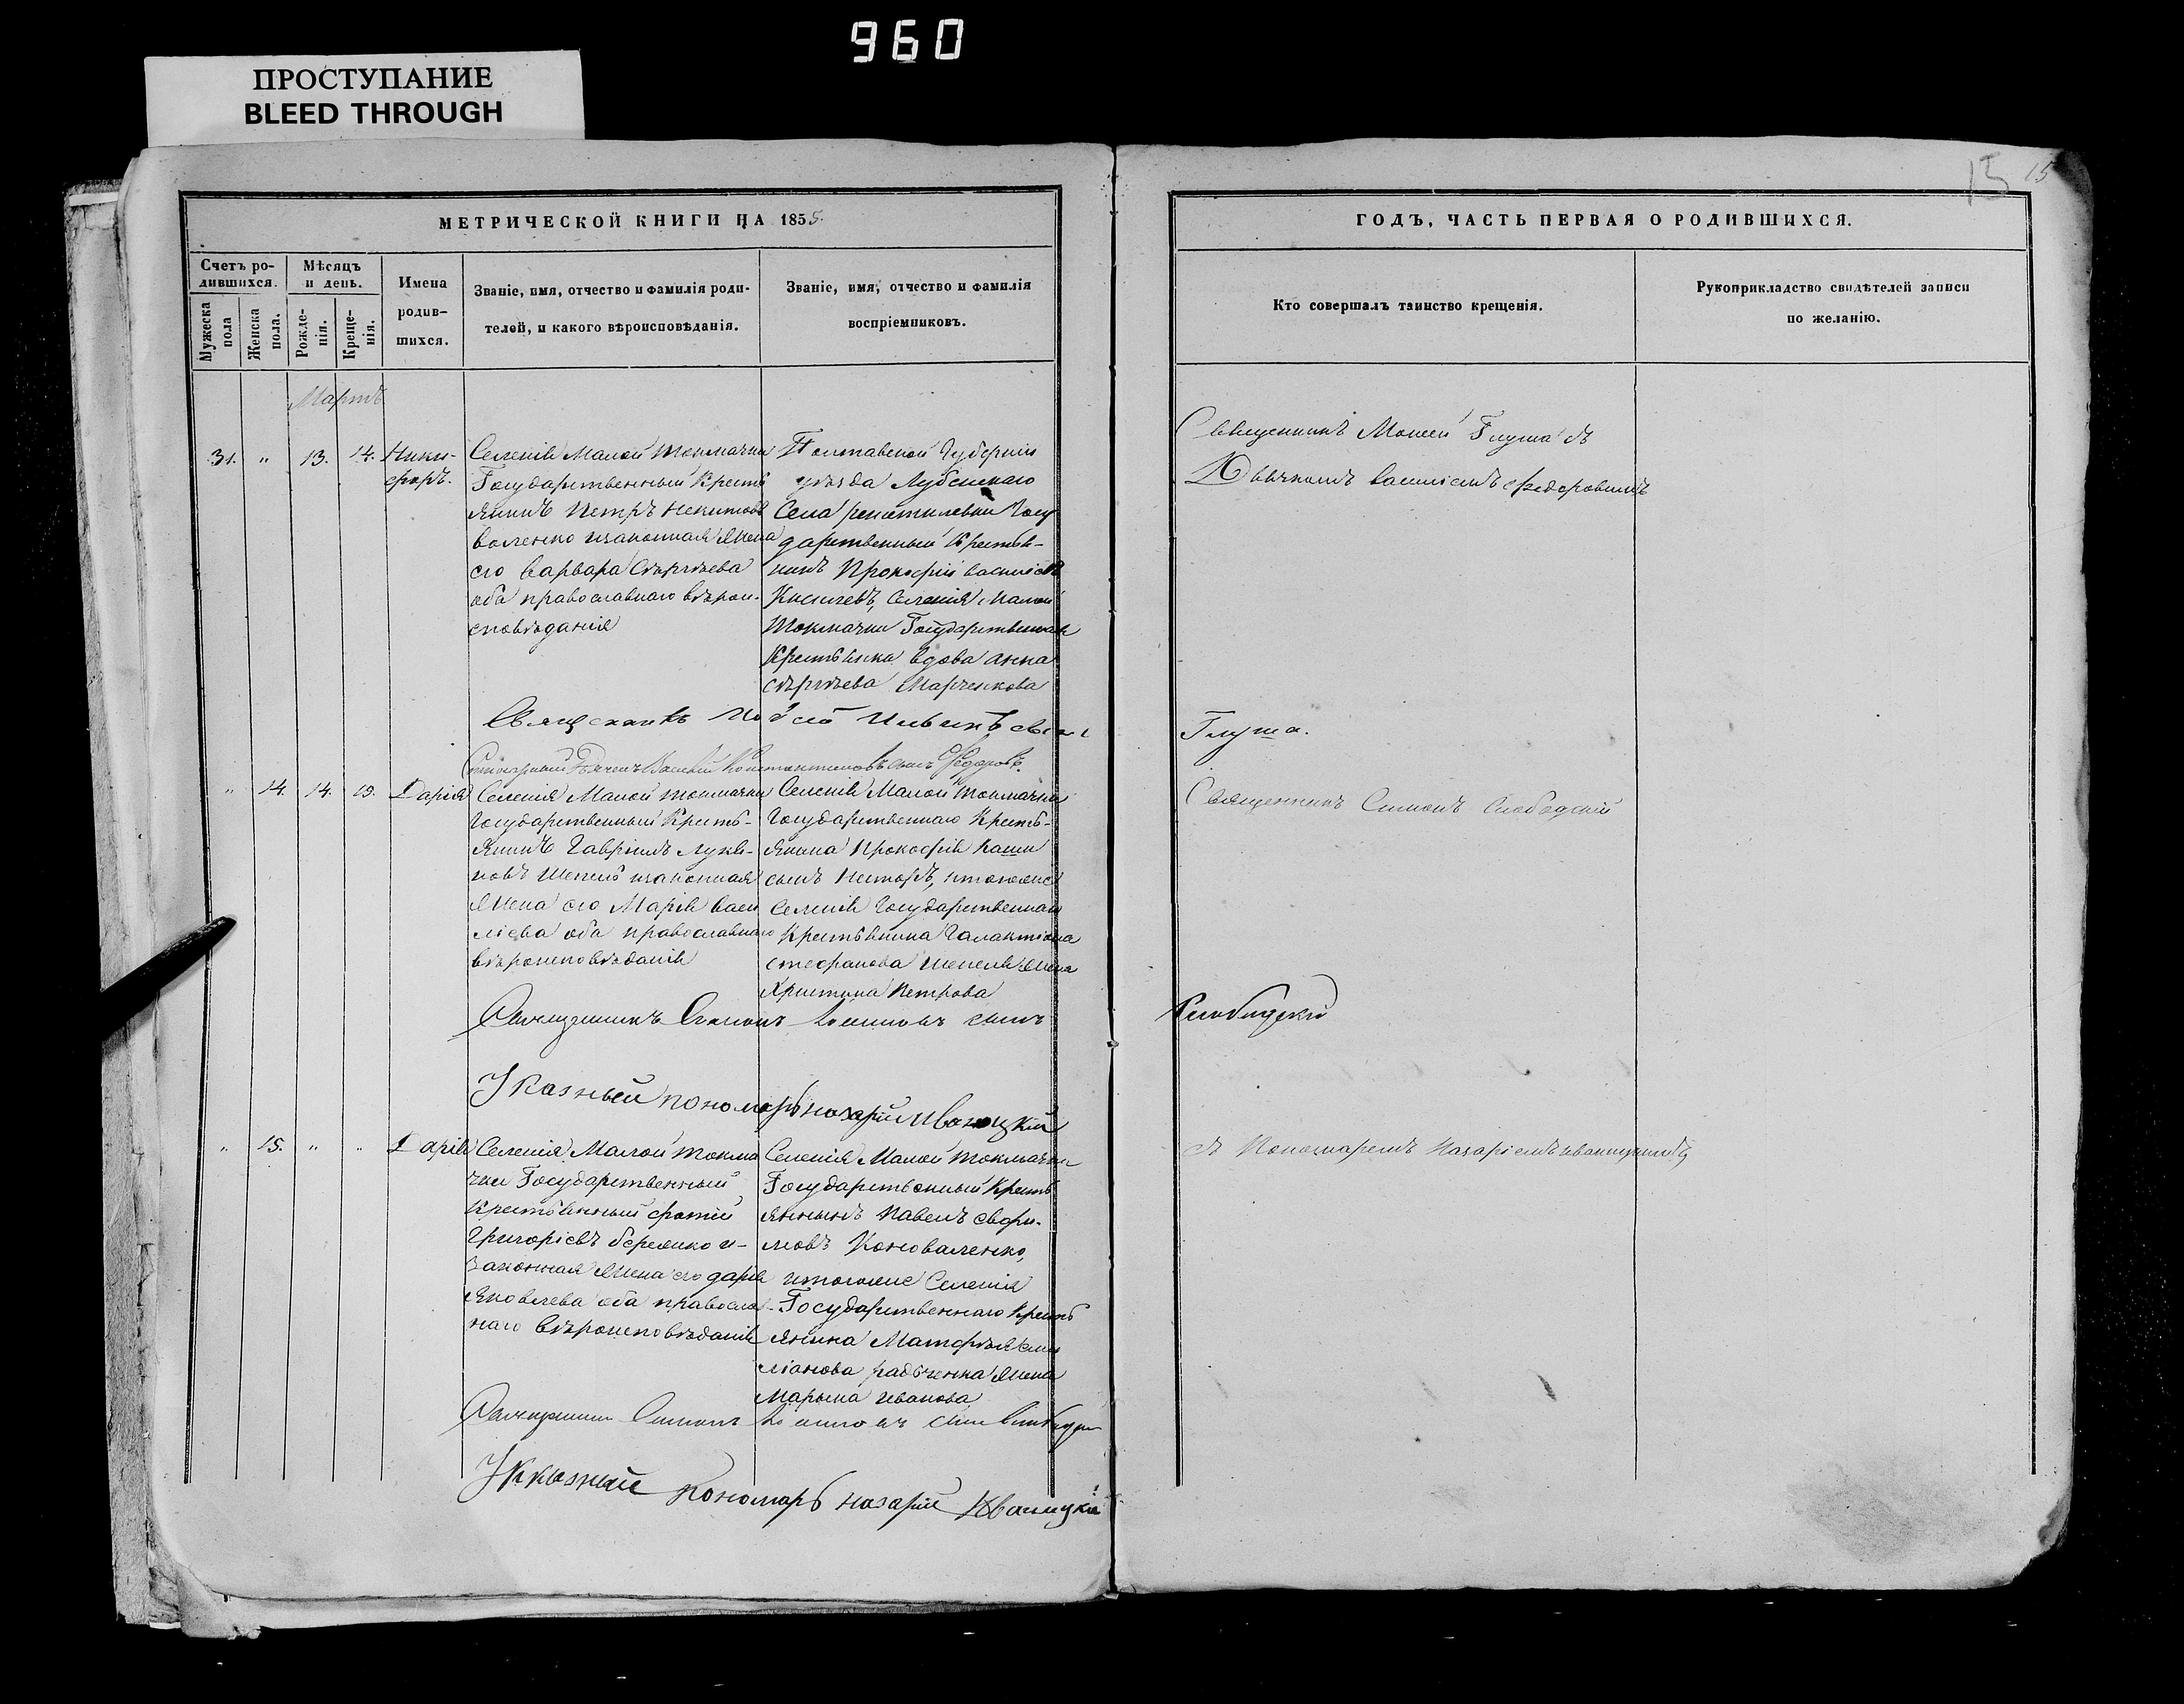 960
ПРОСТУПАНИЕ
BLEED THROUGH
15 15
МЕТРИЧЕСКОЙ КНИГИ НА 1855.
Счетъ ро-
дившихся.
Мужеска
пола
Женска
пола.
Мѣсяцъ
и день.
Рожде-
нія.
Креще-
нія.
Имена
родив-
шихся.
Званіе, имя, отчество и фамилія роди-
телей, и какого вѣроисповѣданія.
Званіе, имя, отчество и фамилія
воспріемниковъ.
Мартъ
31. " 13. 14. Ники-
форъ.
Селенія Малой Токмачки
Государственный Кресть
янинъ Петръ Никитовъ
изаконная Жена
его Варвара Сергѣева
оба православнаго вѣрои-
сповѣданія
Полтавской Губерніи
уѣзда Лубенскаго
Села Госу
дарственный Крестья-
нинъ Прокофій Василіевъ
Селенія Малой
Токмачки Государственная
Крестьянка вдова Анна
Сергѣева Марченкова
Священникъ сынъ
Дячекъ Василій Константиновъ сынъ Федоровъ.
" 14. 14. 19. Дарія
Селенія Малой Токмачки
Государственный Кресть-
янинъ Гавріилъ Лукья-
новъ Шепель изаконная
Жена его Марія Васи
лієва оба православнаго
вѣроисповѣданія
Селенія Малой Токмачки
Государственнаго Кресть-
янина Прокофія Каши
сынъ Несторъ, итогоже
Селенія Государственнаго
Крестьянина Галактіона
Стефанова Шепеля Жена
Христина Петрова
Священникъ Симонъ сынъ
Указный пономарь Назарій Иваницкій
" 15. " " Дарія
Селенія Малой Токма
чки Государственный
Крестьянинъ Фотій
Григорієвъ и-
законная Жена его Дарія
Яковлева оба православ-
наго вѣроисповѣданія
Селенія Малой Токмачки
Государственный Кресть
янинъ Павелъ Ефи-
мовъ Коноваленко,
итогоже Селенія
Государственнаго Кресть
янина Матфѣя Еми
ліанова Радченка Жена
Марьина Иванова
Священникъ Симонъ сынъ
Указный Пономарь Назарій Иваницкій
ГОДЪ, ЧАСТЬ ПЕРВАЯ О РОДИВШИХСЯ.
Кто совершалъ таинство крещенія.
Рукоприкладство свидѣтелей записи
по желанію.
Священникъ Моисей Глуша съ
Дьячкомъ Василіемъ Федоровымъ
Глуша.
Священникъ Симонъ Слободскій
Слободскій
съ Пономаремъ Назаріемъ Иваницкимъ